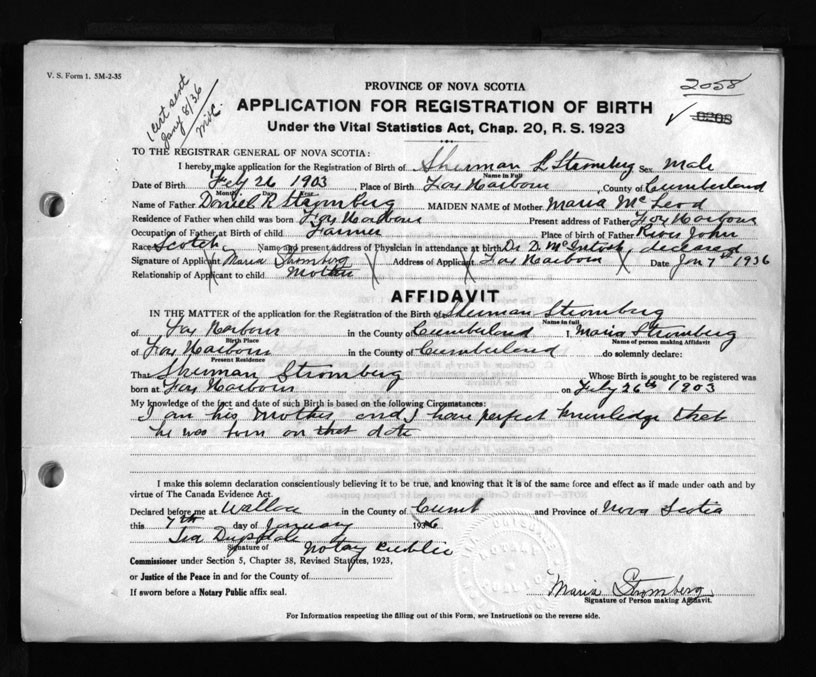 V. S. Form 1. 5M-2-35
1 cert sent
Jany 8/36
2058
PROVINCE OF NOVA SCOTIA
APPLICATION FOR REGISTRATION OF BIRTH
Under the Vital Statistics Act, Chap. 20, R. S. 1923
TO THE REGISTRAR GENERAL OF NOVA SCOTIA:
I hereby make application for the Registration of Birth of Sherman L Stromberg Sex Male
Name in Full
Date of Birth July 26 1903 Place of Birth Fox Harbour, County of Cumberland
Month Day Year
Name of Father Daniel R Stromberg MAIDEN NAME of Mother Maria McLeod
Residence of Father when child was born Fox Harbour Present address of Father Fox Harbour
Occupation of Father at Birth of child Farmer Place of birth of Father River John
Race Scotch Name and present address of Physician in attendance at birth Dr D. McIntosh, deceased
Signature of Applicant Maria Stromberg Address of Applicant Fox Harbour Date Jan 7th 1936
Relationship of Applicant to child Mother
AFFIDAVIT
IN THE MATTER of the application for the Registration of the Birth of Sherman Stromberg
Name in full
of Fox Harbour in the County of Cumberland I, Maria Stromberg
Birth Place Name of person making Affidavit
of Fox Harbour in the County of Cumberland do solemnly declare:
Present Residence
That Sherman Stromberg Whose Birth is sought to be registered was
born at Fox Harbour on July 26th 1903
My knowledge of the fact and date of such Birth is based on the following Circumstances:
I am his Mother and I have perfect knowledge that
he was born on that date
I make this solemn declaration conscientiously believing it to be true, and knowing that it is of the same force and effect as if made under oath and by
virtue of The Canada Evidence Act.
Declared before me at Wallace in the County of Cumb and Province of Nova Scotia
this 7th day of January 1936
Notary Public
Signature of
Commissioner under Section 5, Chapter 38, Revised Statutes, 1923,
or Justice of the Peace in and for the County of
If sworn before a Notary Public affix seal.
Maria Stromberg
Signature of Person making Affidavit.
For Information respecting the filling out of this Form, see Instructions on the reverse side.